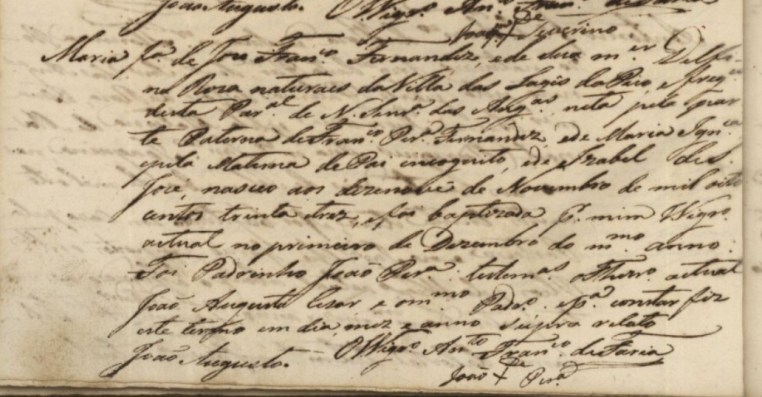 João Augusto. O Vigrº Antº Franº de Faria
João + Severino
Maria fª de José Franco Fernandez, e de sua mer Delfi-
na Roza naturaes da Villa das Lagis do Pico, e freg
desta Paral de N. Senrª das Angas neta pela par
te Paterna de Franco Perª Fernandez, e de Maria Ignca
e pela Materna de Pai incognito, e de Izabel de S.
José, nasceo aos dezenove de Novembro de mil oito
centos trinta e trez, e foi baptizada p. mim Vigro
actual no primeiro de Dezembro do mmo anno.
Foi Padrinho João Perª. testemas o Thezro actual
João Augusto Cesar e o mmo Padro. e pª constar fiz
este termo em dia mez e anno supra relato
João Augusto. O Vigrº Anto Franco de Faria
João + Perª
de